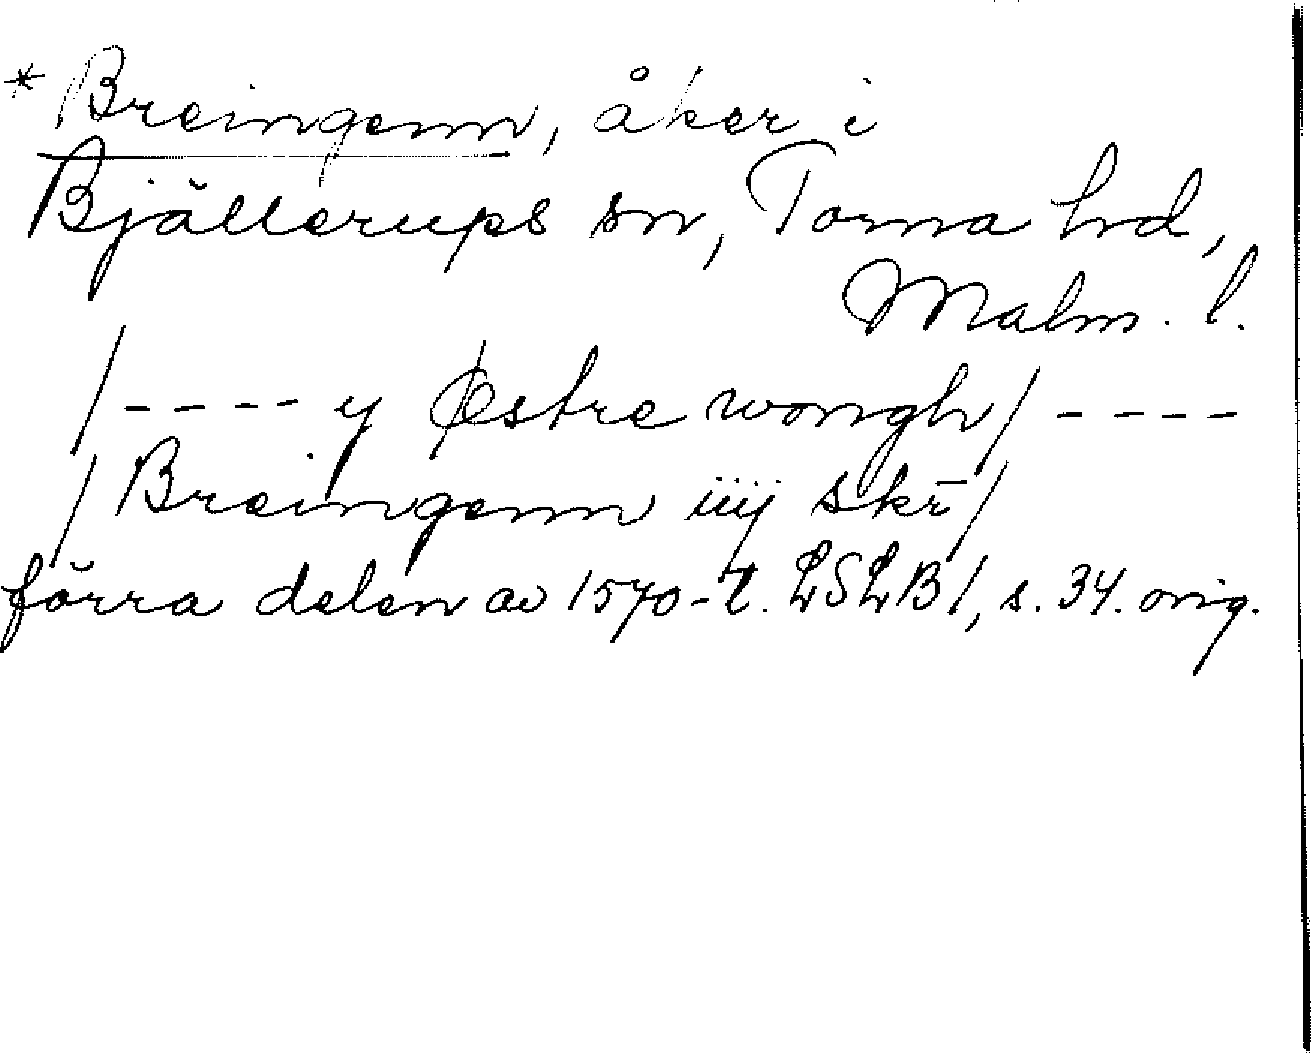 * Breingenn, åker i
Bjällerups sn, Torna hrd,
Malm. l.
/---- y Østre wongh/ ----
/Breingenn iiij skr̄/
förra delen av 1570-t. LSLB1, s. 34. orig.